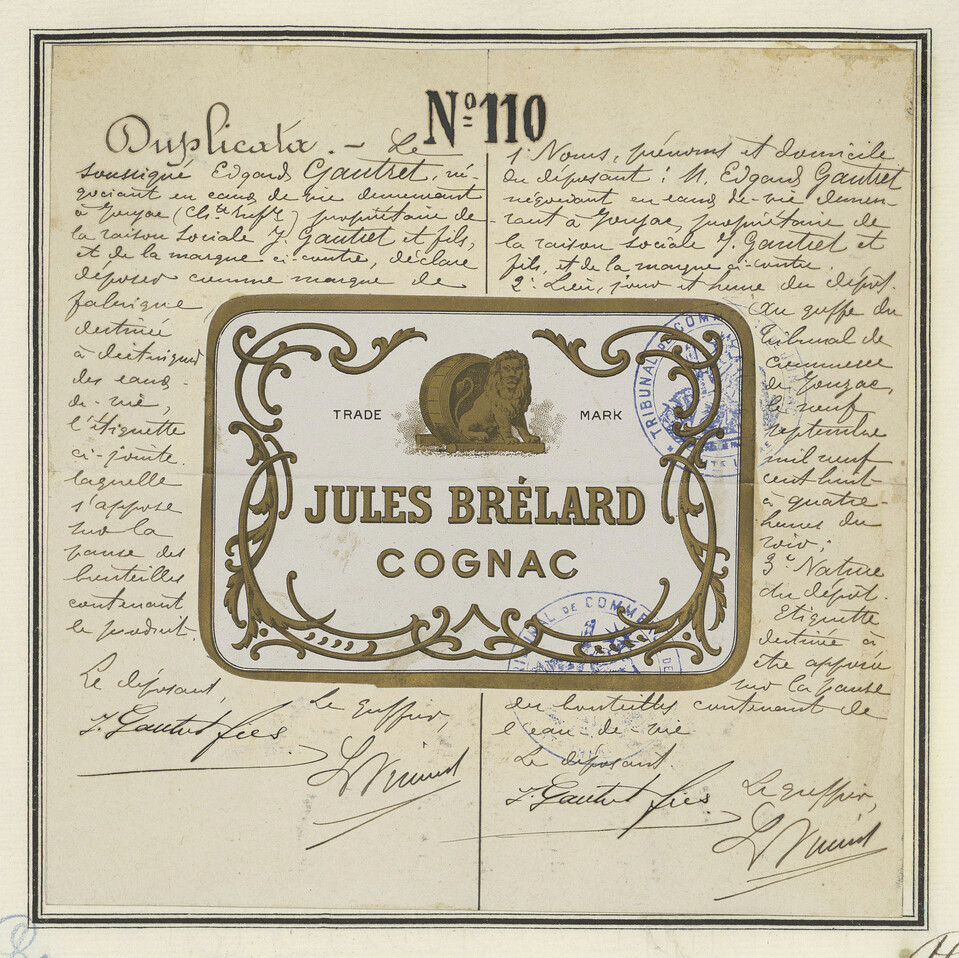 Nº 110
Duplicata. - Le
soussigné Edgard Gautret, né-
gociant en eaux de vie demeurant
à Jonzac (Ch.te Infre) propriétaire de
la raison sociale J. Gautret et fils,
et de la marque ci-contre, déclare
déposer comme marque de
fabrique
destinée
à distinguer
des eaux-
de-vie,
l'étiquette
ci-jointe.
laquelle
s'appose
sur la
panse des
bouteilles
contenant
le produit.
Le déposant,
J. Gautret fils
Le greffier,
TRADE MARK
JULES BRÉLARD
COGNAC
1º Noms, prénoms et domicile
du déposant : M. Edgard Gautret
négociant en eaux-de-vie demeu-
rant à Jonzac, propriétaire de
la raison sociale J. Gautret et
fils, et de la marque ci-contre
2º Lieu, jour et heure du dépôt.
Au greffe du
tribunal de
Commerce
de Jonzac,
le neuf
septembre
mil neuf
cent huit
à quatre-
heures du
soir ;
3º Nature
du dépôt.
Etiquette
destinée à
être apposée
sur la panse
des bouteilles contenant de
l'eau-de-vie
Le déposant.
J. Gautret fils
Le greffier,
TRIBUNAL DE COMM
NAL DE COMME
DE